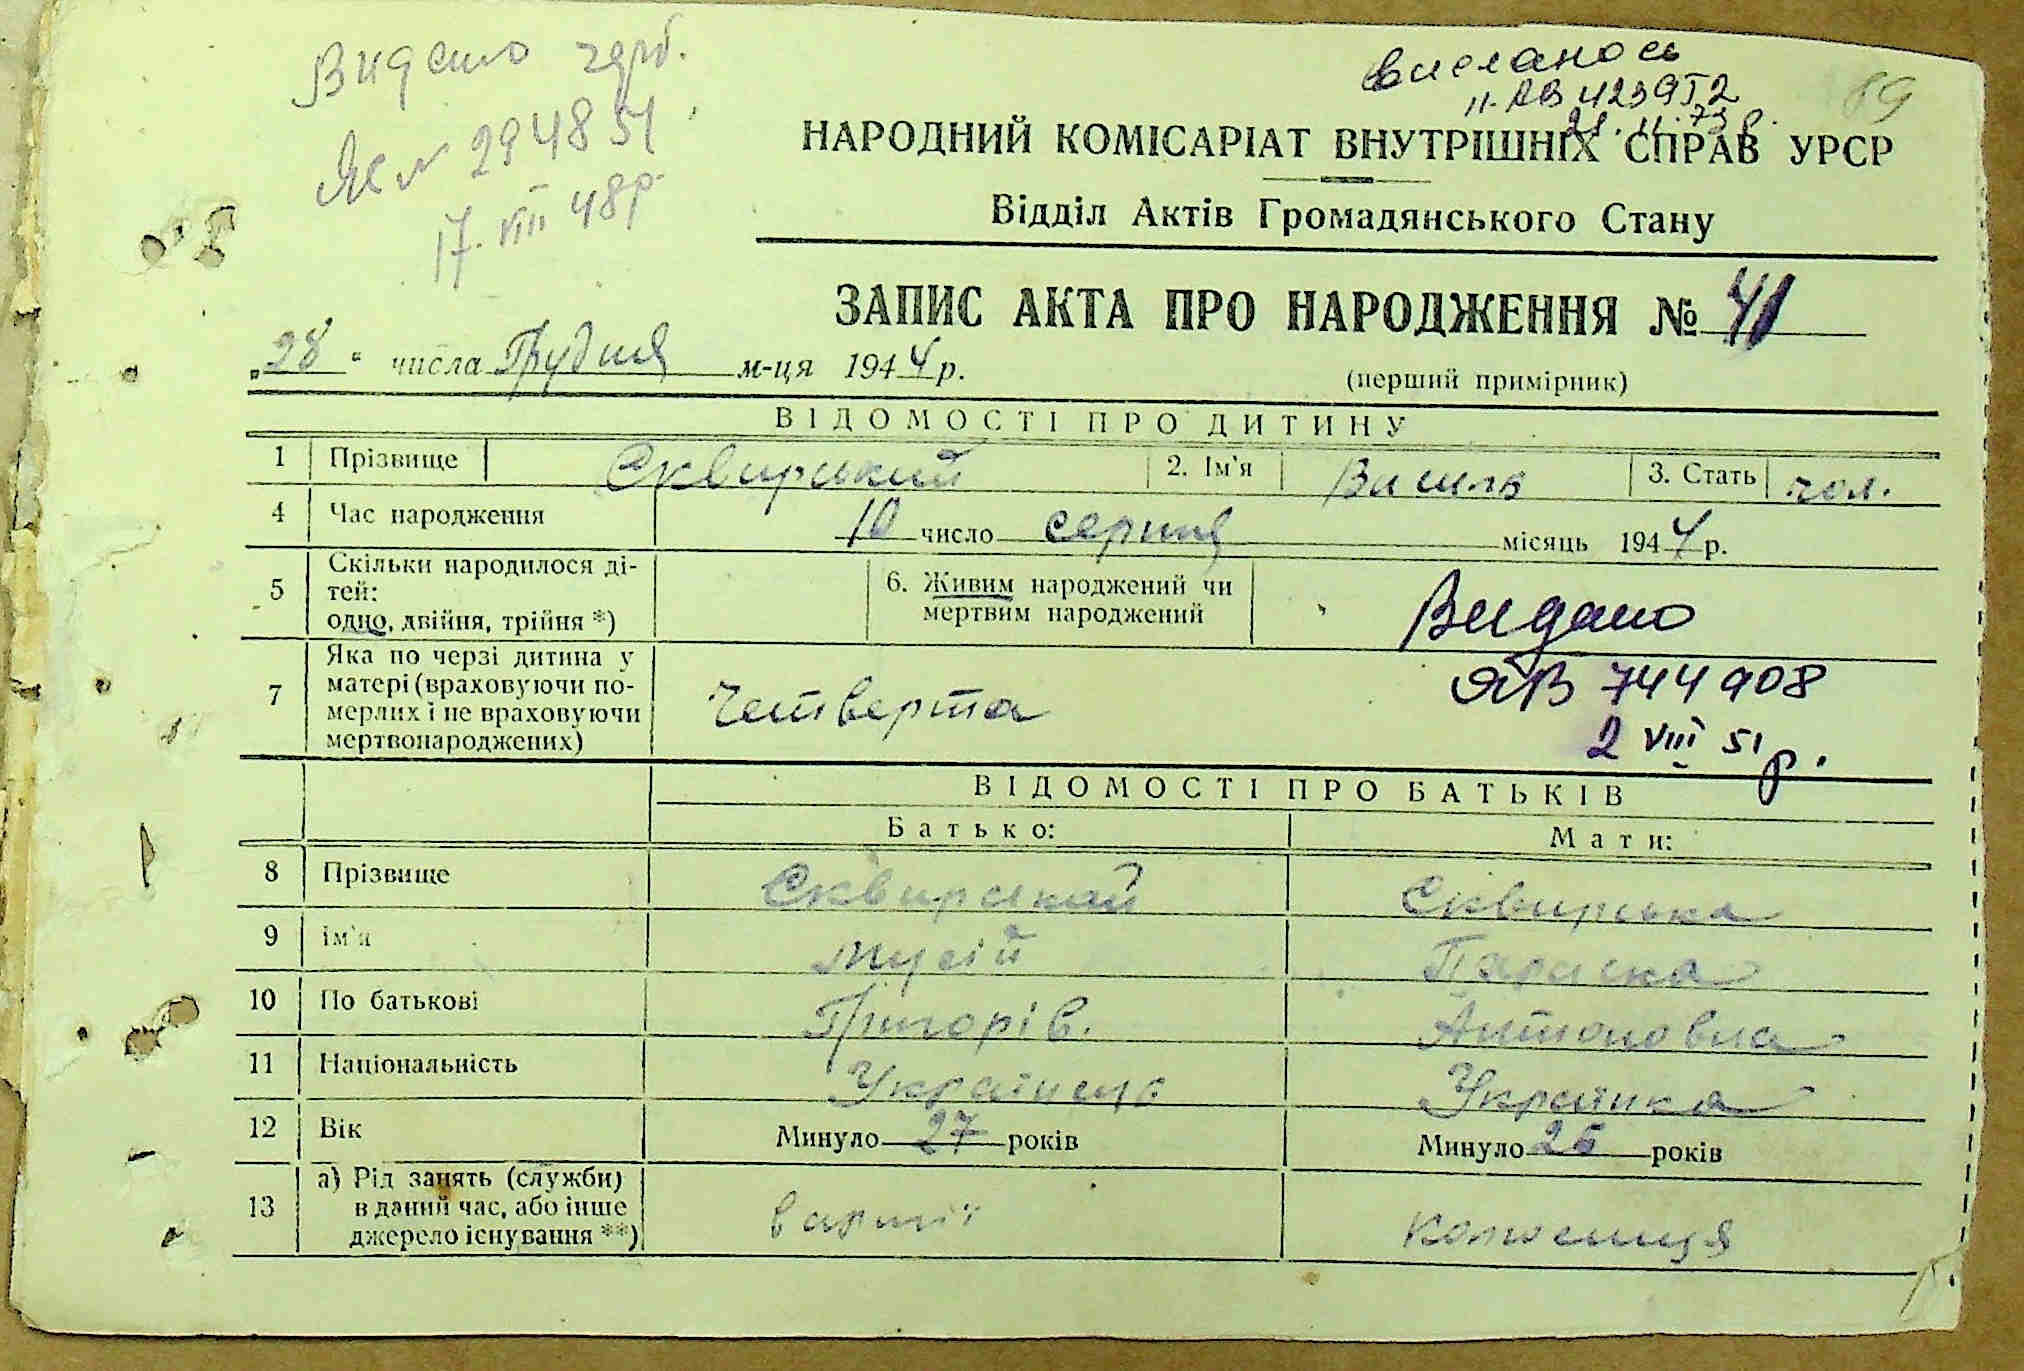 Видано
ЯС № 294851
17. VIII 48 р.
висланось
21. 11. 73 р.
НАРОДНИЙ КОМІСАРІАТ ВНУТРІШНІХ СПРАВ УРСР
Відділ Актів Громадянського Стану
ЗАПИС АКТА ПРО НАРОДЖЕННЯ № 41
„28“ числа Грудня м-ця 1944 р.
(перший примірник)
ВІДОМОСТІ ПРО ДИТИНУ
1 Прізвище Сквирький 2. Ім'я Василь 3. Стать чол.
4 Час народження 10 число серпня місяць 1944 р.
5 Скільки народилося ді-
тей:
одно, двійня, трійня *)
6. Живим народжений чи
мертвим народжений
Видано
ЯВ 744908
2 VIII 51 р.
7 Яка по черзі дитина у
матері (враховуючи по-
мерлих і не враховуючи
мертвонароджених)
четверта
ВІДОМОСТІ ПРО БАТЬКІВ
Батько: Мати:
8 Прізвище Сквирський Сквирська
9 Ім'я Мусій Параска
10 По батькові Григорів. Антоновна
11 Національність Українець Українка
12 Вік Минуло 27 років Минуло 26 років
13 а) Рід занять (служби)
в даний час, або інше
джерело існування **)
в армії колгосниця